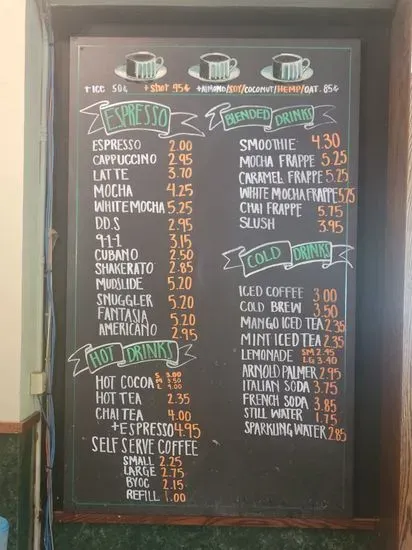 +ICE 50¢ +SHOT 95¢ +ALMOND/SOY/COCONUT/HEMP/OAT .85¢
ESPRESSO
ESPRESSO 2.00
CAPPUCCINO 2.95
LATTE 3.70
MOCHA 4.25
WHITE MOCHA 5.25
D.D.S 2.95
9-1-1 3.15
CUBANO 2.50
SHAKERATO 2.85
MUDSLIDE 5.20
SNUGGLER 5.20
FANTASIA 5.20
AMERICANO 2.95
HOT DRINKS
HOT COCOA S 3.00
M 3.50
L 4.00
HOT TEA 2.35
CHAI TEA 4.00
+ESPRESSO 4.95
SELF SERVE COFFEE
SMALL 2.25
LARGE 2.75
BYOC 2.15
REFILL 1.00
BLENDED DRINKS
SMOOTHIE 4.30
MOCHA FRAPPE 5.25
CARAMEL FRAPPE 5.25
WHITE MOCHA FRAPPE 5.75
CHAI FRAPPE 5.75
SLUSH 3.95
COLD DRINKS
ICED COFFEE 3.00
COLD BREW 3.50
MANGO ICED TEA 2.35
MINT ICED TEA 2.35
LEMONADE SM 2.45
LG 3.40
ARNOLD PALMER 2.95
ITALIAN SODA 3.75
FRENCH SODA 3.85
STILL WATER 1.75
SPARKLING WATER 2.85